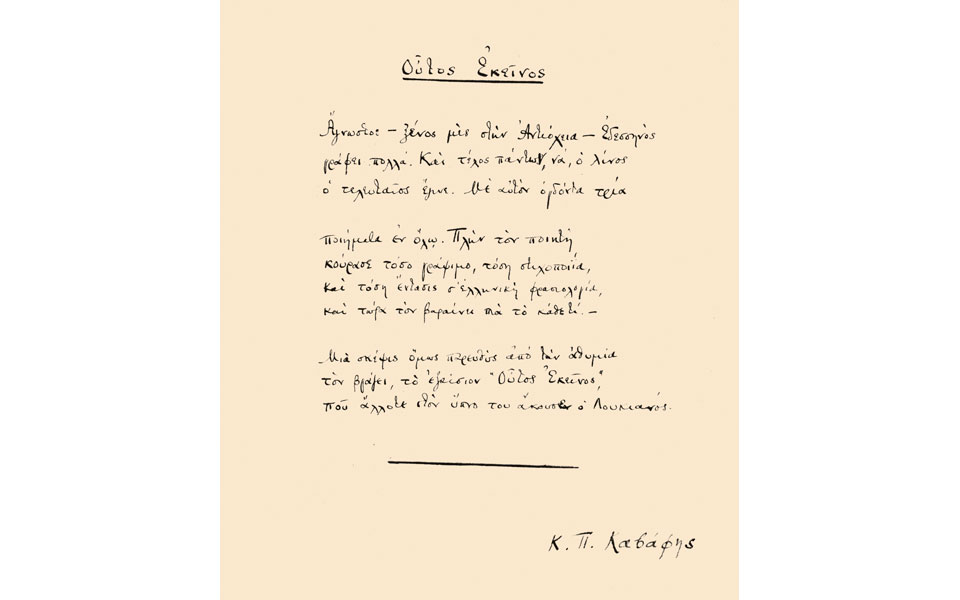 Οὗτος Ἐκεῖνος
Ἄγνωστος – ξένος μὲς στὴν Ἀντιόχεια – Ἐδεσσηνὸς
γράφει πολλά. Καὶ τέλος πάντων, νά, ὁ λίνος
ὁ τελευταῖος ἔγινε. Μὲ αὐτὸν ὀγδόντα τρία
ποιήματα ἐν ὅλῳ. Πλὴν τὸν ποιητὴ
κούρασε τόσο γράψιμο, τόση στιχοποιΐα,
καὶ τόση ἔντασις σ' ἑλληνικὴ φρασιολογία,
καὶ τώρα τὸν βαραίνει πιὰ τὸ κάθε τί. –
Μιὰ σκέψις ὅμως παρευθὺς ἀπὸ τὴν ἀθυμία
τὸν βγάζει, τὸ ἐξαίσιον "Οὗτος Ἐκεῖνος",
ποὺ ἄλλοτε στὸν ὕπνο του ἄκουσεν ὁ Λουκιανός.
Κ. Π. Καβάφης